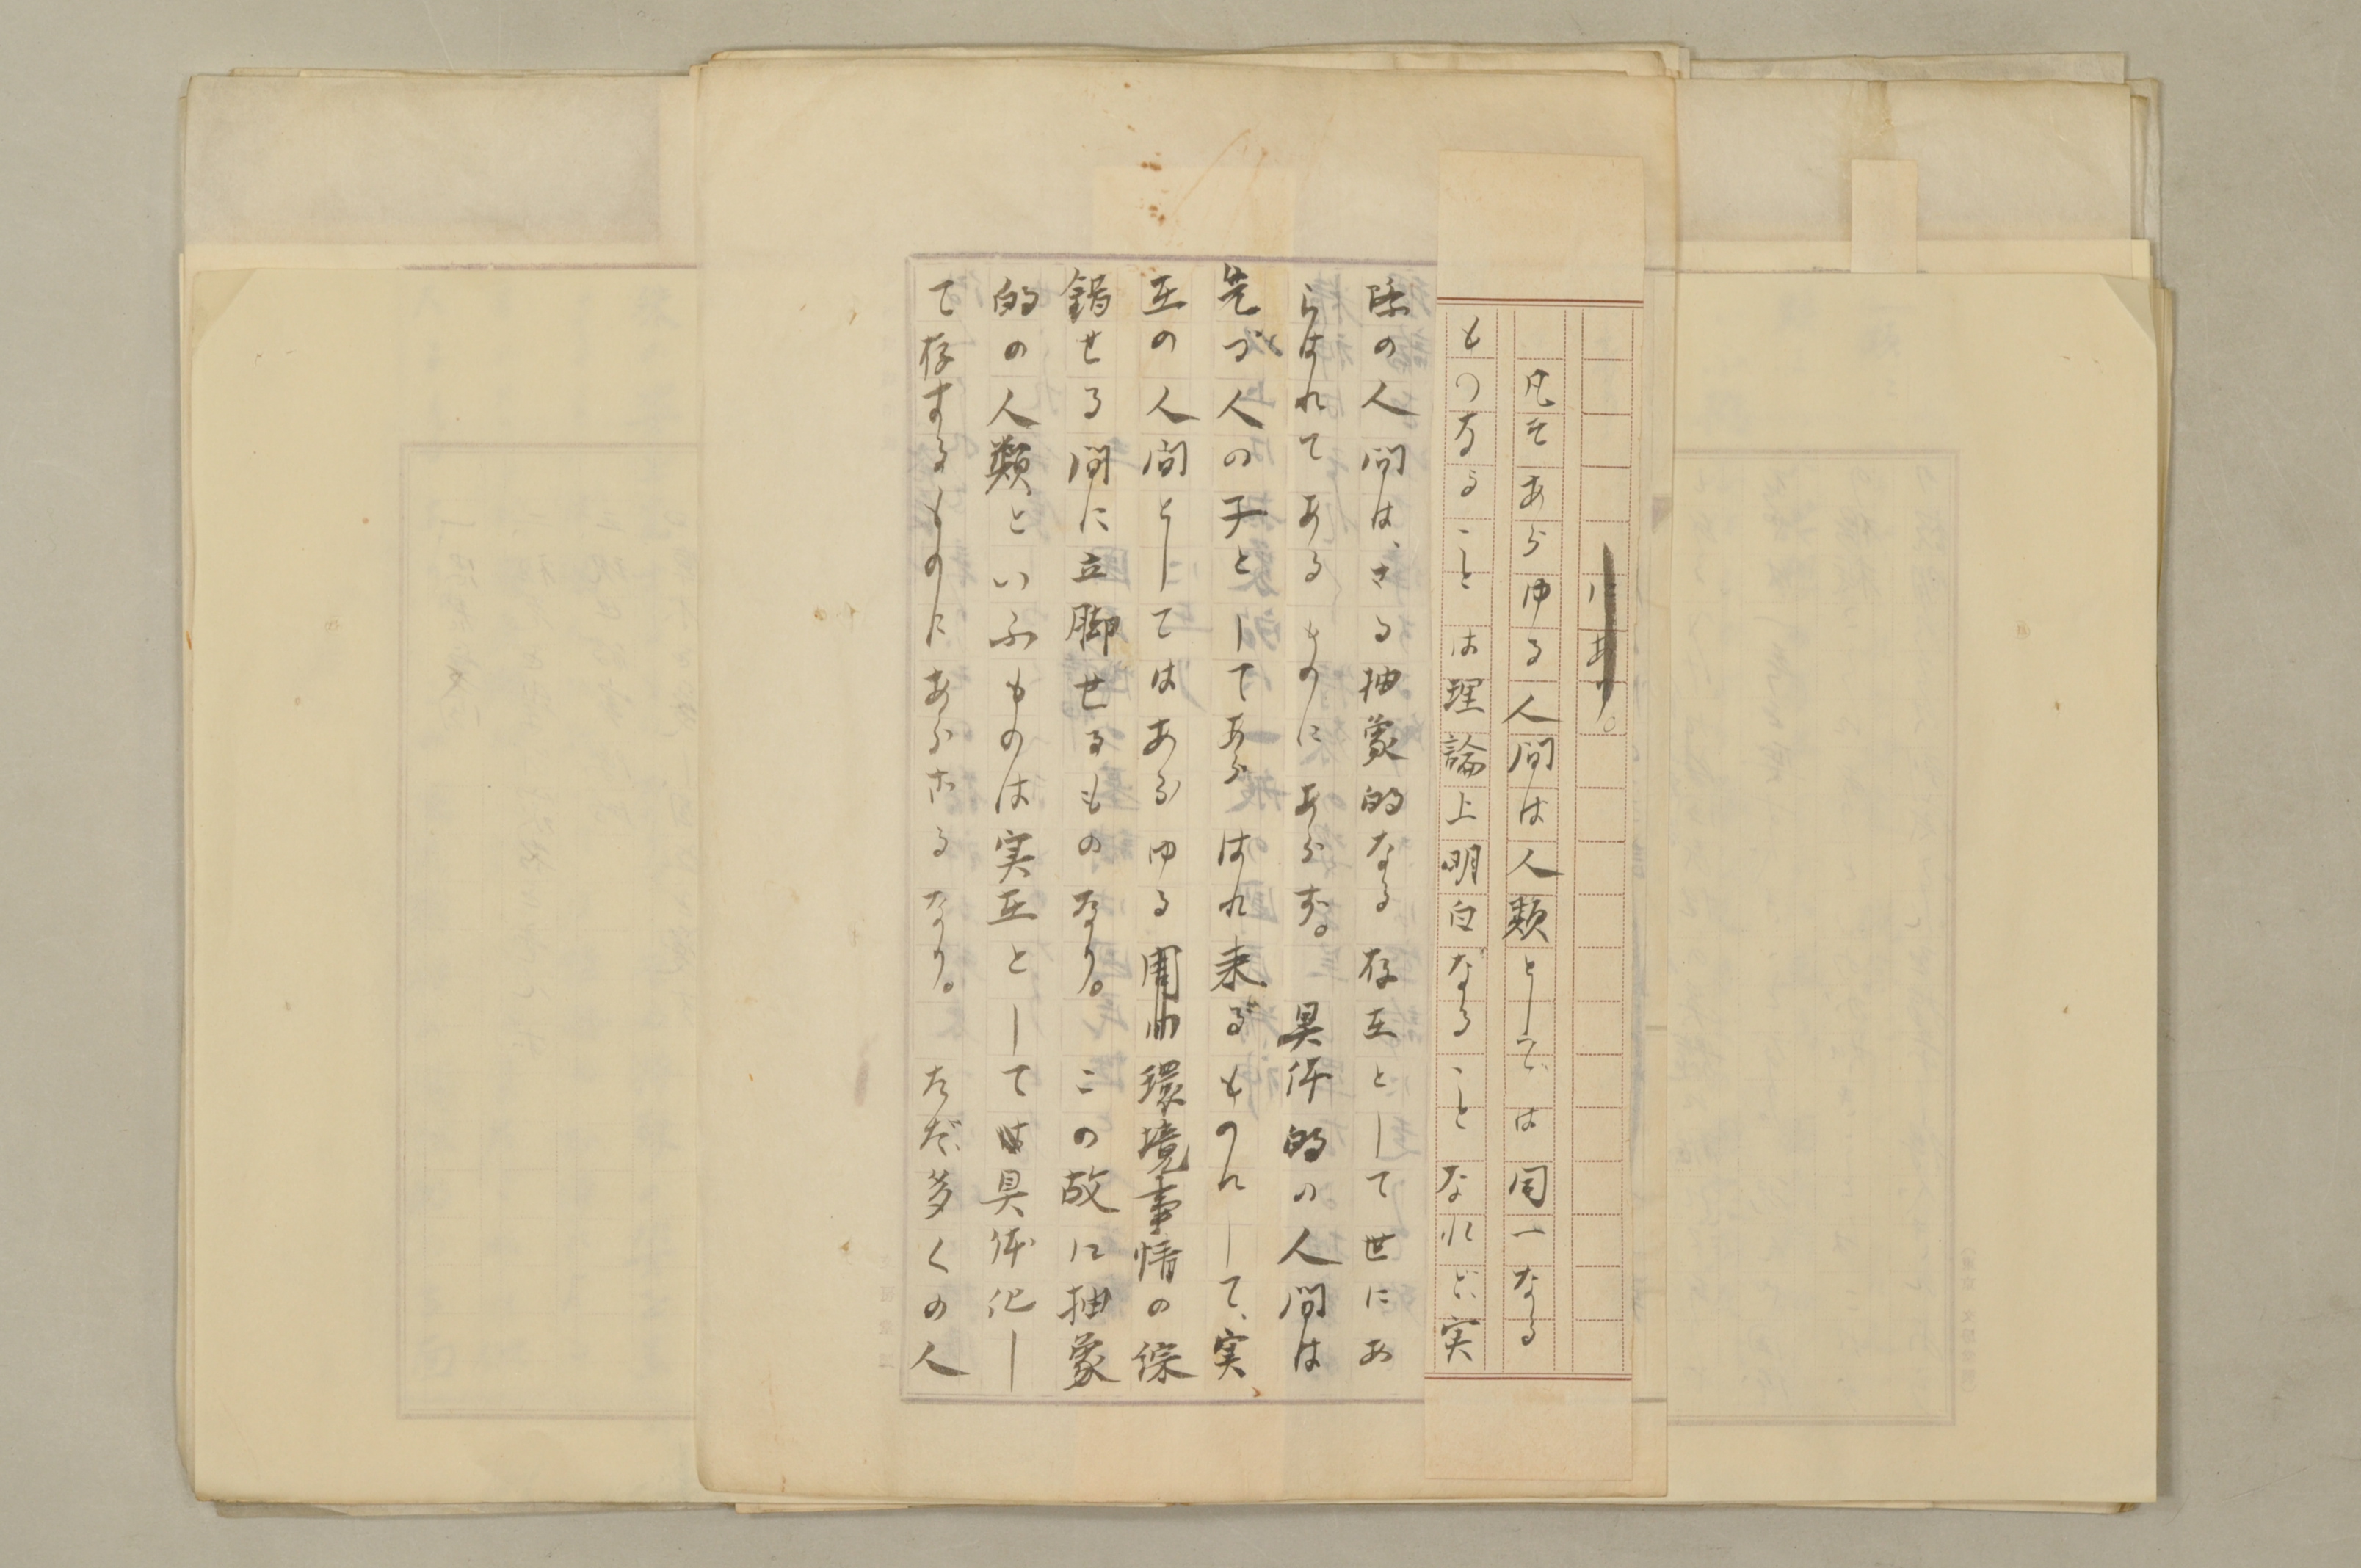 にあり。
凡そあらゆる人間は人類としては同一なる
ものなることは理論上明白なることなれど、実
際の人間は、さる抽象的なる存在として世にあ
らはれてあるものにあらず。具体的の人間は
先づ人の子としてあらはれ来るものにして、実
在の人間としてはあらゆる環境事情の綜
錯せる間に立脚せるものなり。この故に抽象
的の人類といふものは実在としては具体化し
て存するものにあらざるなり。ただ多くの人